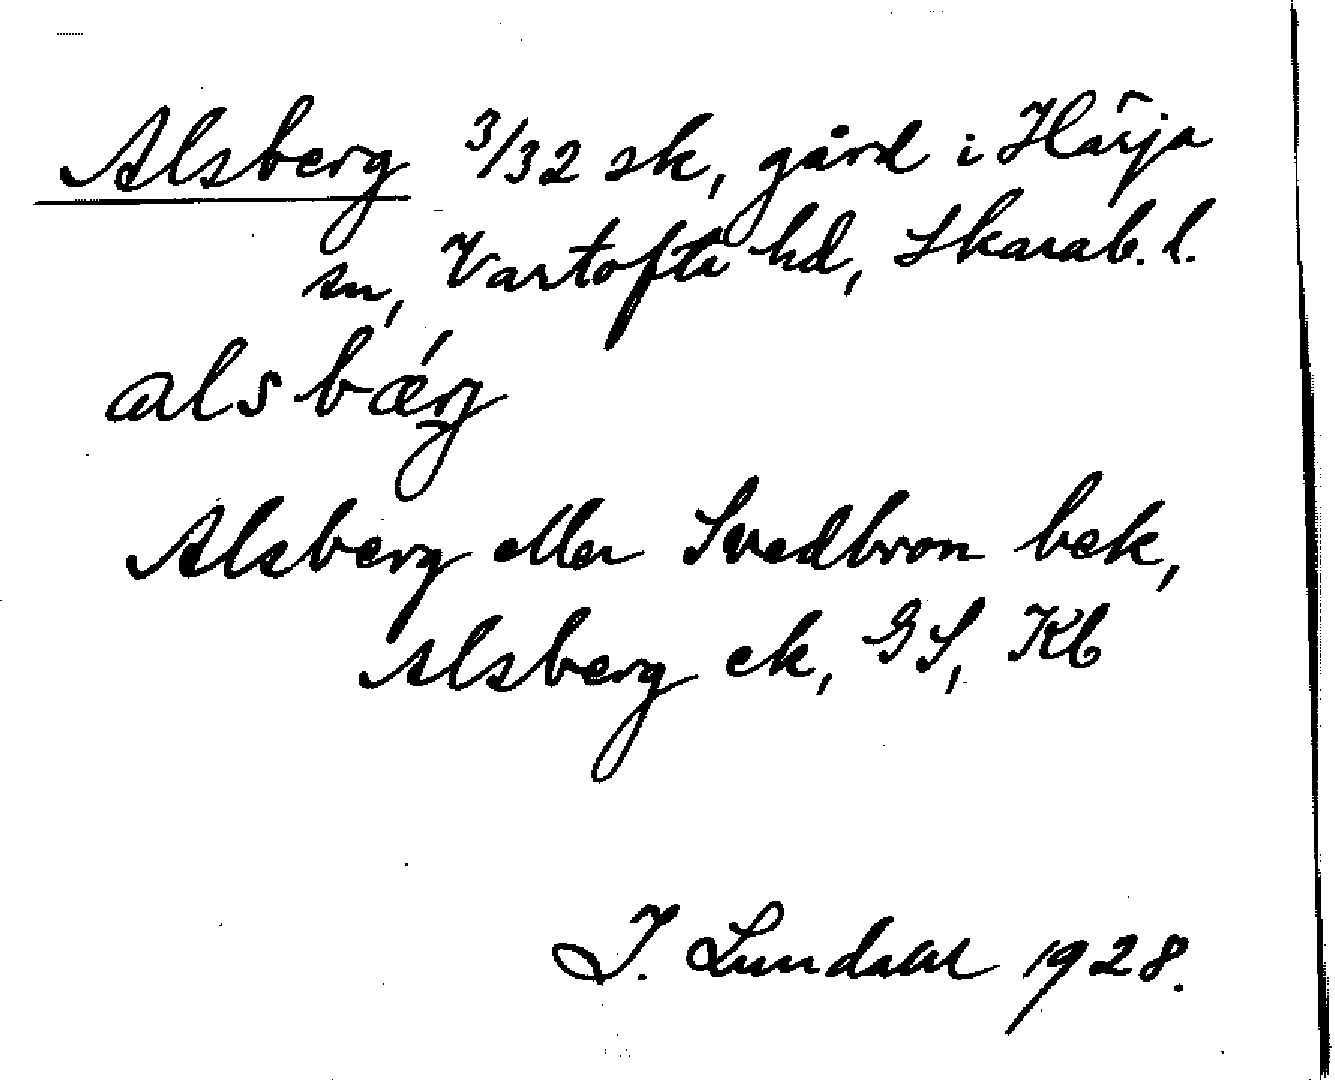 Alsberg 3/32 sk, gård i Härja
sn, Vartofta hd, Skarab. l.
alsbǽrg
Alsberg eller Svedbron bek,
Alsberg ek, GS, Kb
I. Lundahl 1928.